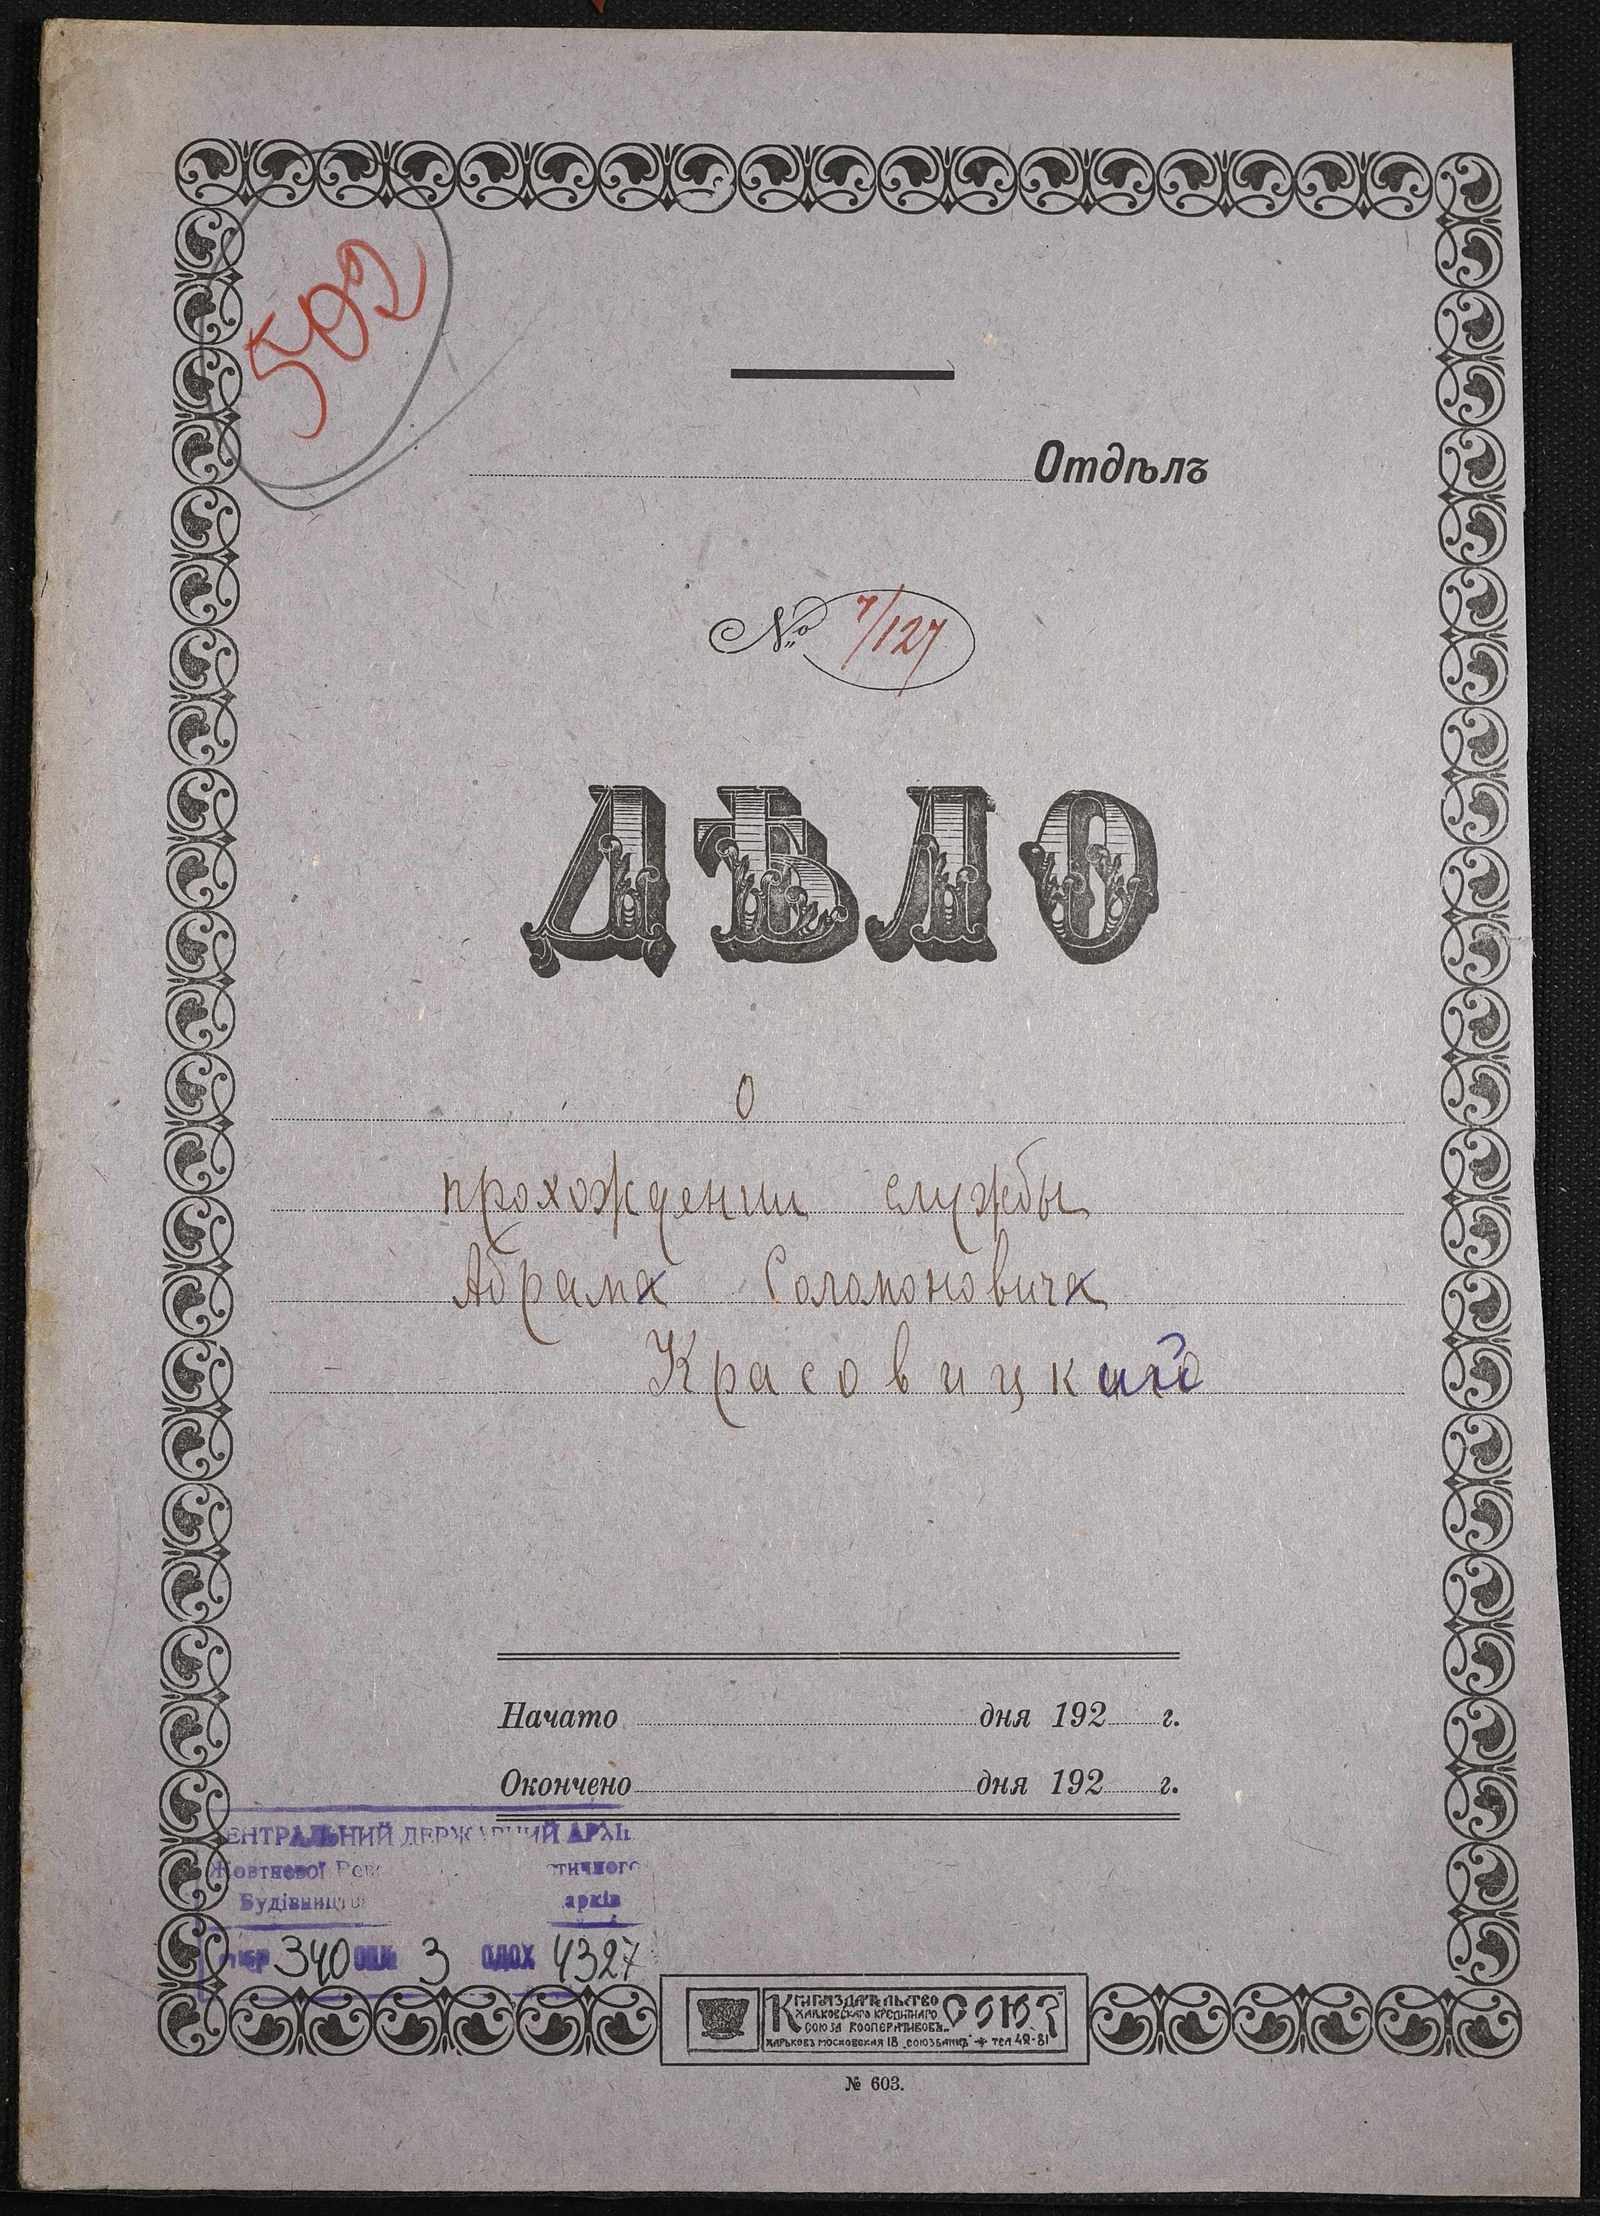 502
Отдѣлъ
№ 7/127
ДѢЛО
о
прохождении службы
Абрама Соломоновича
Красовицкий
Начато дня 192 г.
Окончено дня 192 г.
ЦЕНТРАЛЬНИЙ ДЕРЖАВНИЙ АРХІВ
Жовтневої
Будівництва архів
340 опис 3 ОДОХ 4327
КНИГОИЗДАТЕЛЬСТВО СОЮЗ
ХАРЬКОВСКАГО КРЕДИТНАГО
СОЮЗА КООПЕРАТИВОВЪ
ХАРЬКОВЪ МОСКОВСКАЯ 18 „СОЮЗБАНКЪ" * ТЕЛ 42-81
№ 603.